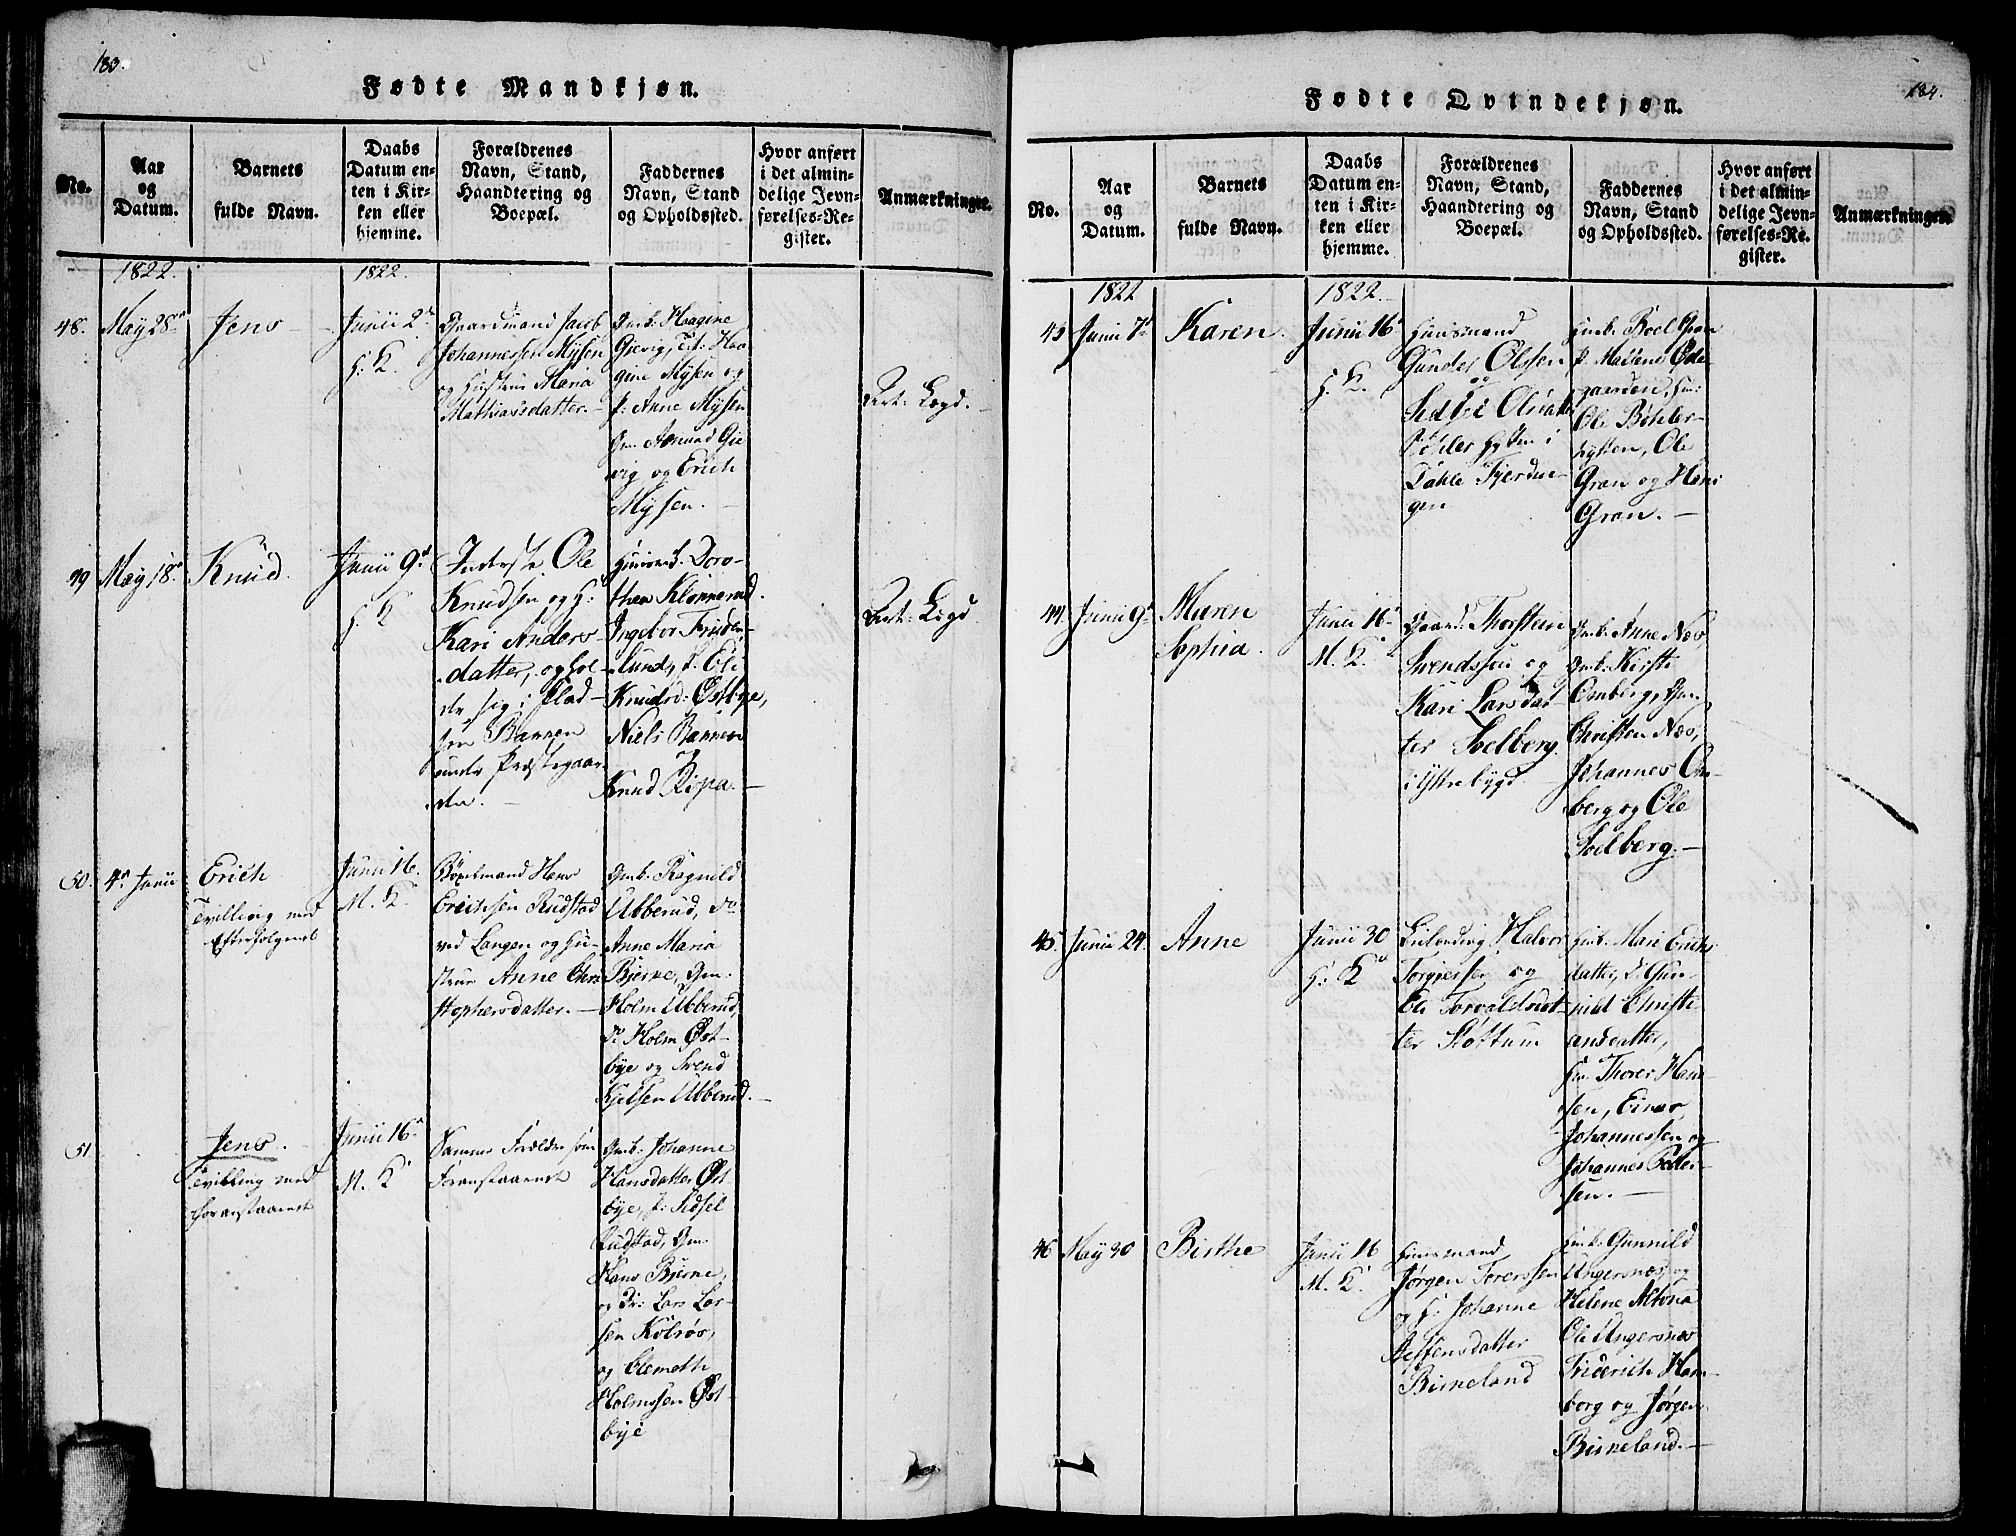 133.
Fødte Mandkjøn.
No.
Aar
og
Datum.
Barnets
fulde Navn.
Daabs
Datum en-
ten i Kir-
ken eller
hjemme.
Forældrenes
Navn, Stand,
Haandtering og
Boepæl.
Faddernes
Navn, Stand
og Opholdssted.
Hvor anført
i det almin-
delige Jevn-
førelses-Re-
gister.
Anmærkninger.
1822.
1822.
48.
May 28de
Jens
Junii 2de
H: K.
Gaardmand Jacob
Johannessen Mÿsen
og Hustrue Maria
Mathiasdatter.
Gmb: Haagine
Gievig, Hav
gine Mÿsen og
p: Anne Mÿsen
Gm: Asmund Gie
vig og Erich
Mÿsen.
49
May 18de
Knud.
Junii 9de
H: K
Inderste Ole
Knudsen og H:
Kari Anders-
datter, ophol-
de sig i Plad-
sen Bannen
under Præstegaar-
den.
Huusmd: Doro-
thea Klonnerud.
Ingebor Frÿden-
lund, p. Eli
Knudsd: Østbye,
Niels Bannen
og
Knud Rispa.
50.
4de Junii
Erich
Tvilling med
Efterfølgende
Junii 16.
M. K.
Bøxelmand Hans
Erichsen Rudstad
ved Langen og Hu-
strue Anne Chri
stophersdatter.
Gmb: Ragnild
Ubberud, do
Anne Maria
Bjerke, Gm:
Holm Ubberud,
do Holm Øst-
bye og Svend
Kjelsen Ubberud.
51
Jens.
Tvilling med
Foranstaaende
Junii 16de
M. K.
Samme Forældre som
Foranstaaende
Gmb: Johanne
Hansdatter Øst-
bye, p: Sidsel
Rudstad, Gm:
Hans Bjerke,
og Dr: Lars Lar-
sen Kolsrøs,
og Clemeth
Holmssen Øst-
bye
134.
Fødte Qvindekjøn.
No.
Aar
og
Datum.
Barnets
fulde Navn.
Daabs
Datum en-
ten i Kir-
ken eller
hjemme.
Forældrenes
Navn, Stand,
Haandtering og
Boepæl.
Faddernes
Navn, Stand
og Opholdssted.
Hvor anført
i det almin-
delige Jevn-
førelses-Re-
gister.
Anmærkninger.
1822
1822.
43
Junii 7de
Karen.
Junii 16de
H. K.
Huusmand
Gunder Olssen
og
Sidsel Olsdatter
Bøhlerhytten i
Dahle Fjerdin-
gen
Hmb: Boel Gran
p. Mallene Øde
gaarden, Hm:
Ole Bøhler-
hytten, Ole
Gran og Hans
Gran.
44.
Junii 9de
Maren
Sophia.
Junii 16de
M. K.
Gaardm: Thorstein
Svendssen og
Kari Larsdat-
ter Soelberg
i Ytrebygd
Gmb: Anne Næs,
Gmb: Kirsti
Omberg, Gm:
Christen Næs,
Johannes Om-
berg og Ole
Soelberg.
45.
Junii 24.
Anne
Junii 30
H: K.
Halvor
Torgersen og
Eli Torvaldsdat-
ter Støttum
Hmb: Mari Erichs
datter, do Gun-
nild Christi-
ansdatter,
Hm: Thorer Han-
sen, Einar
Johannessen og
Johannes Peder-
sen.
46
May 30
Birthe
Junii 16
M. K.
Huusmand
Jørgen Torerssen
og H: Johanne
Steffensdatter
Birkeland
Hmb: Gunnild
Ungersnæs og
Helene Altona
Ole Ungersnæs
Friderich Ham-
borg og Jørgen
Birkeland.